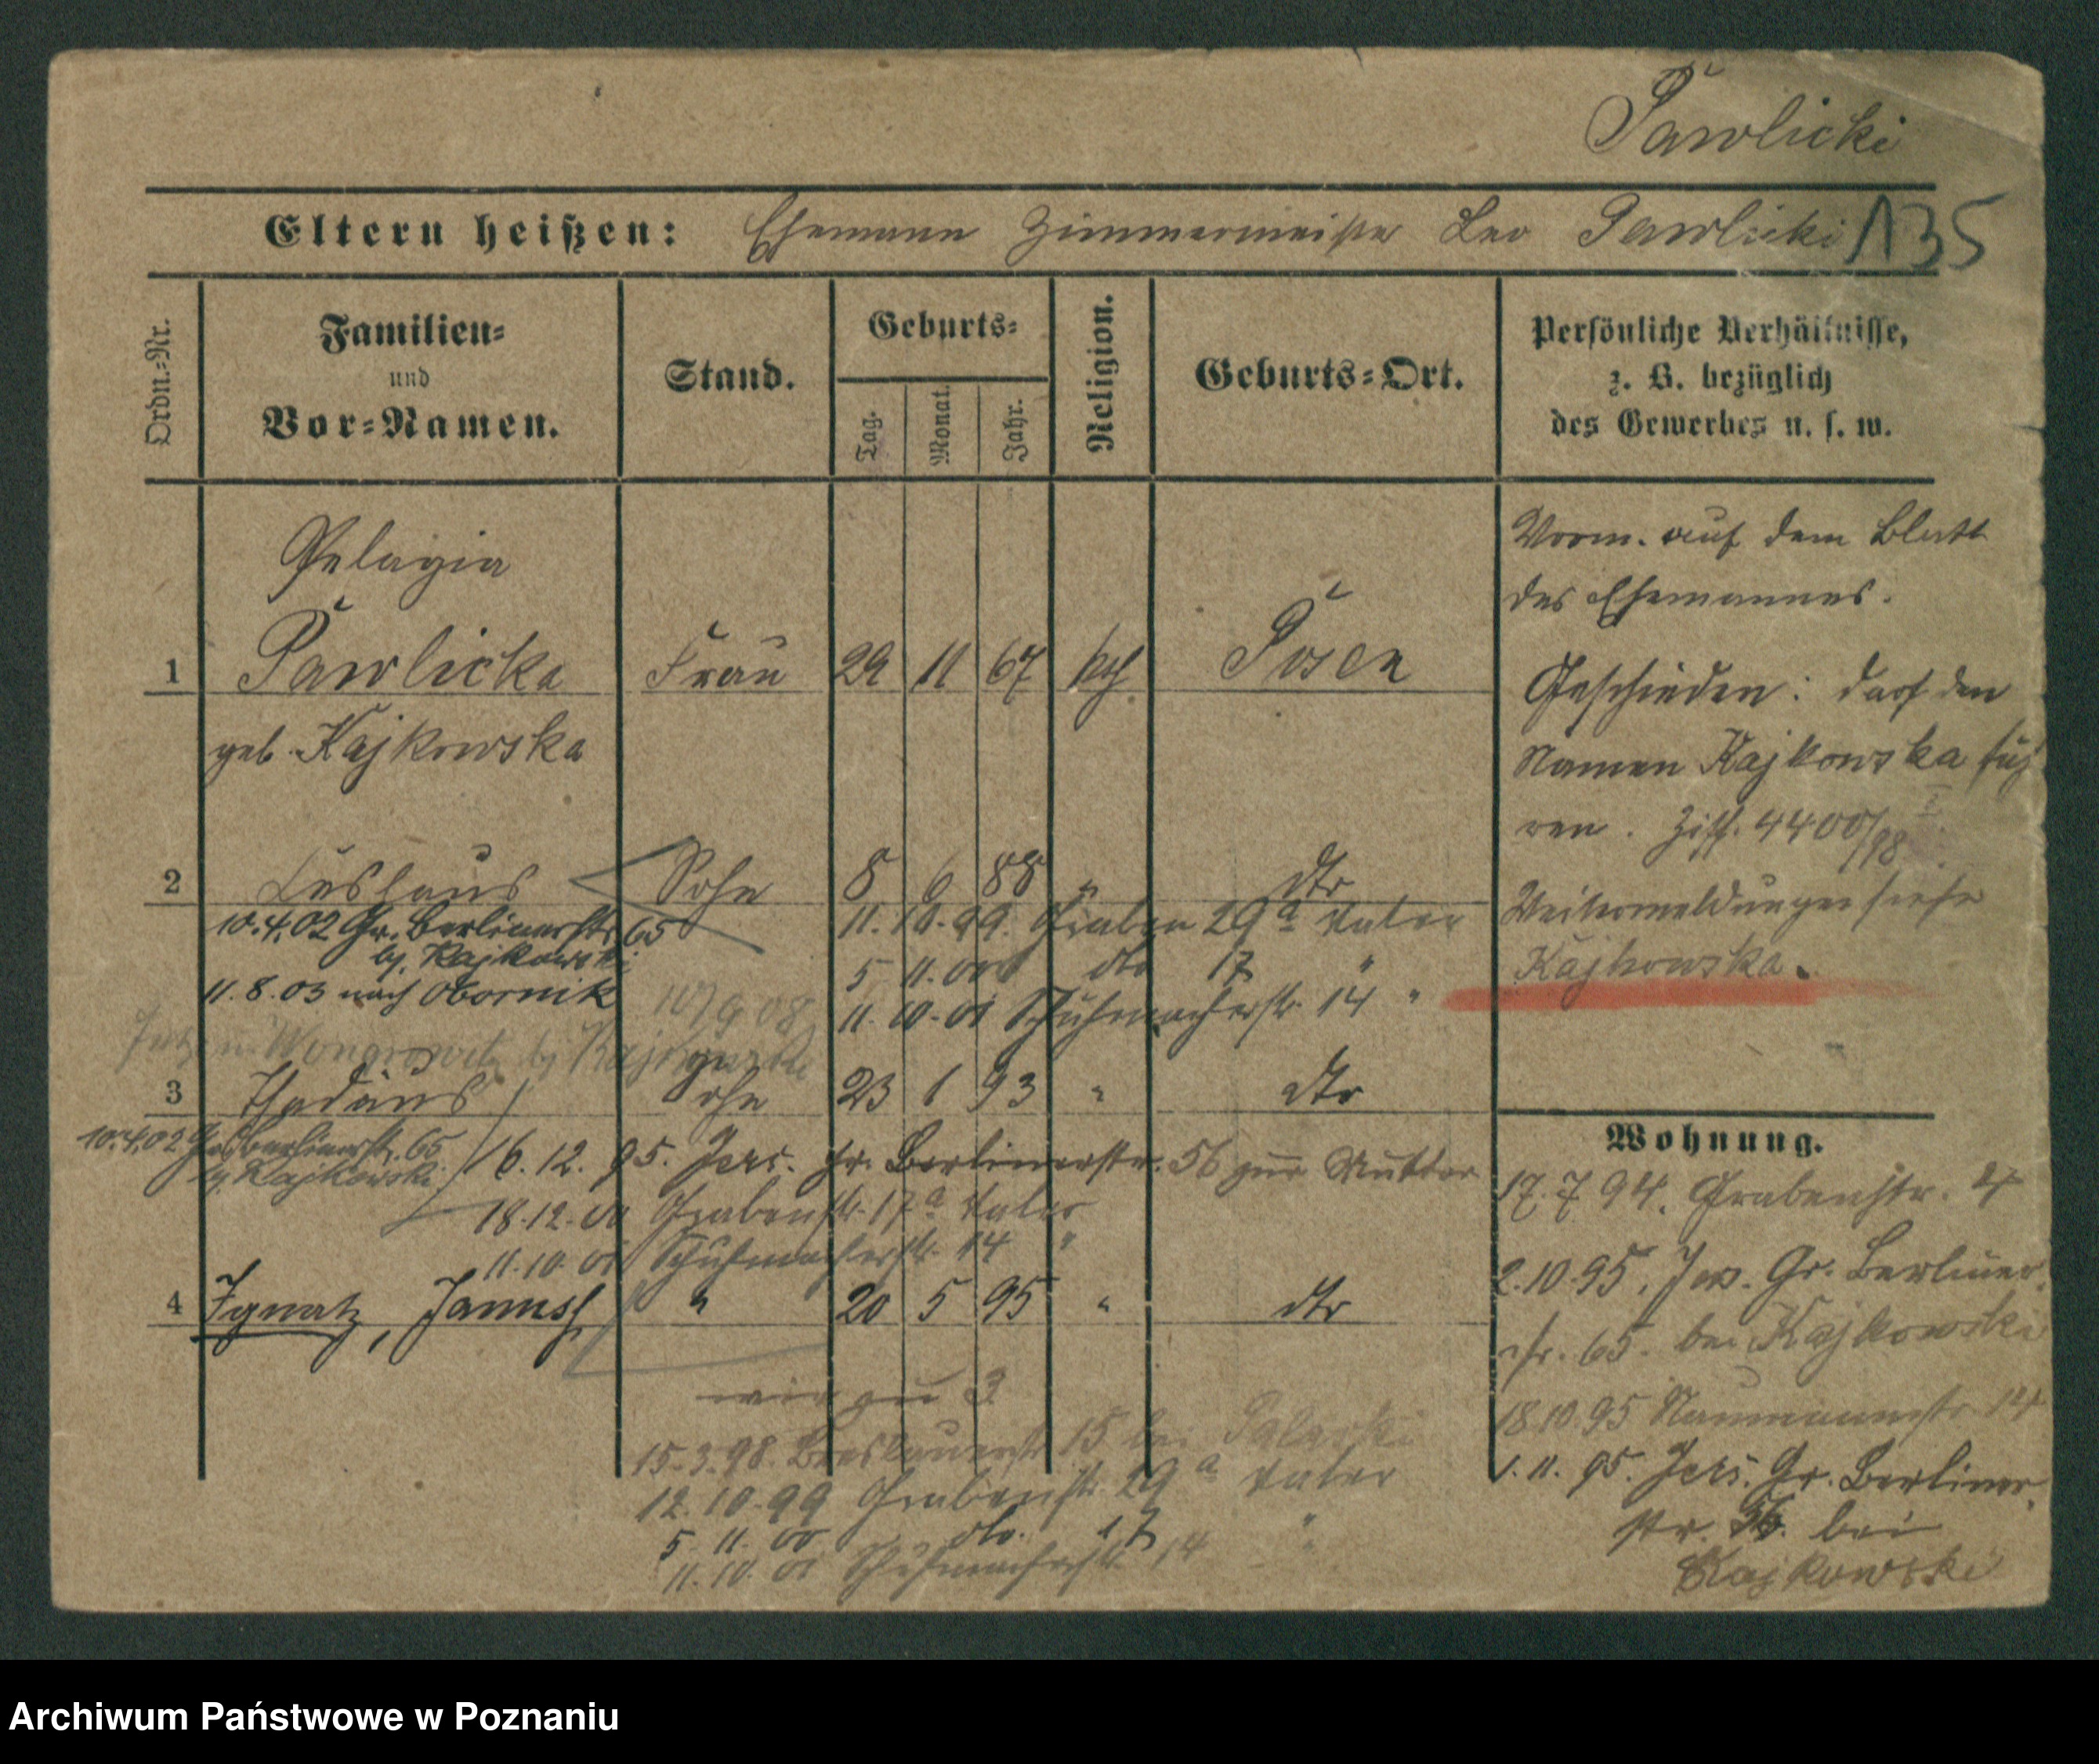 Pawlicki
Eltern heißen: Ehemann Zimmermeister Leo Pawlicki 135
Ordn.-Nr.
Familien-
und
Vor-Namen.
Stand.
Geburts-
Tag.
Monat.
Jahr.
Religion.
Geburts-Ort.
Persönliche Verhältnisse,
z. B. bezüglich
des Gewerbes u. s. w.
Pelagia
1 Pawlicka Frau 29 11 67 kath Posen
geb. Kajkowska
Vorm. auf dem Blatt
des Ehemannes.
Geschieden: darf den
Namen Kajkowska füh
ren. 4400/98
Weitermeldungen siehe
Kajkowska.
2 Sohn 8 6 88 " dto
10.4.02 Gr. Berlinerstr. 65
bj. Kajkowski
11.8.03 nach Obornik
11.10.99. Graben 29a Vater
5 11.00 dto 17 "
11.10.01 Schuhmacherstr. 14 "
10/9 08
bj Kajkowski
3 Thadäus Sohn 23 1 93 " dto
10.4.02 Gr. Berlinerstr. 65
bj. Kajkowski
16.12.95. Jers. Gr. Berlinerstr. 56 zur Mutter
18.12.00 Grabenstr. 17a Vater
11.10.01 Schuhmacherstr. 14 "
4 Ignatz, Janusch " 20 5 95 " dto
wie zu 3
15.3.98. Breslauerstr 15 bei
12.10.99 Grabenstr. 29a Vater
5.11.00 dto. 17 "
11.10.01 Schuhmacherstr. 14 "
Wohnung.
17.7.94. Grabenstr. 4
2.10.95. Jers. Gr. Berliner
str. 65. bei Kajkowski
18.10.95 Naumannstr. 14
1.11.95. Jers. Gr. Berliner
str. 56. bei
Kajkowski
Archiwum Państwowe w Poznaniu